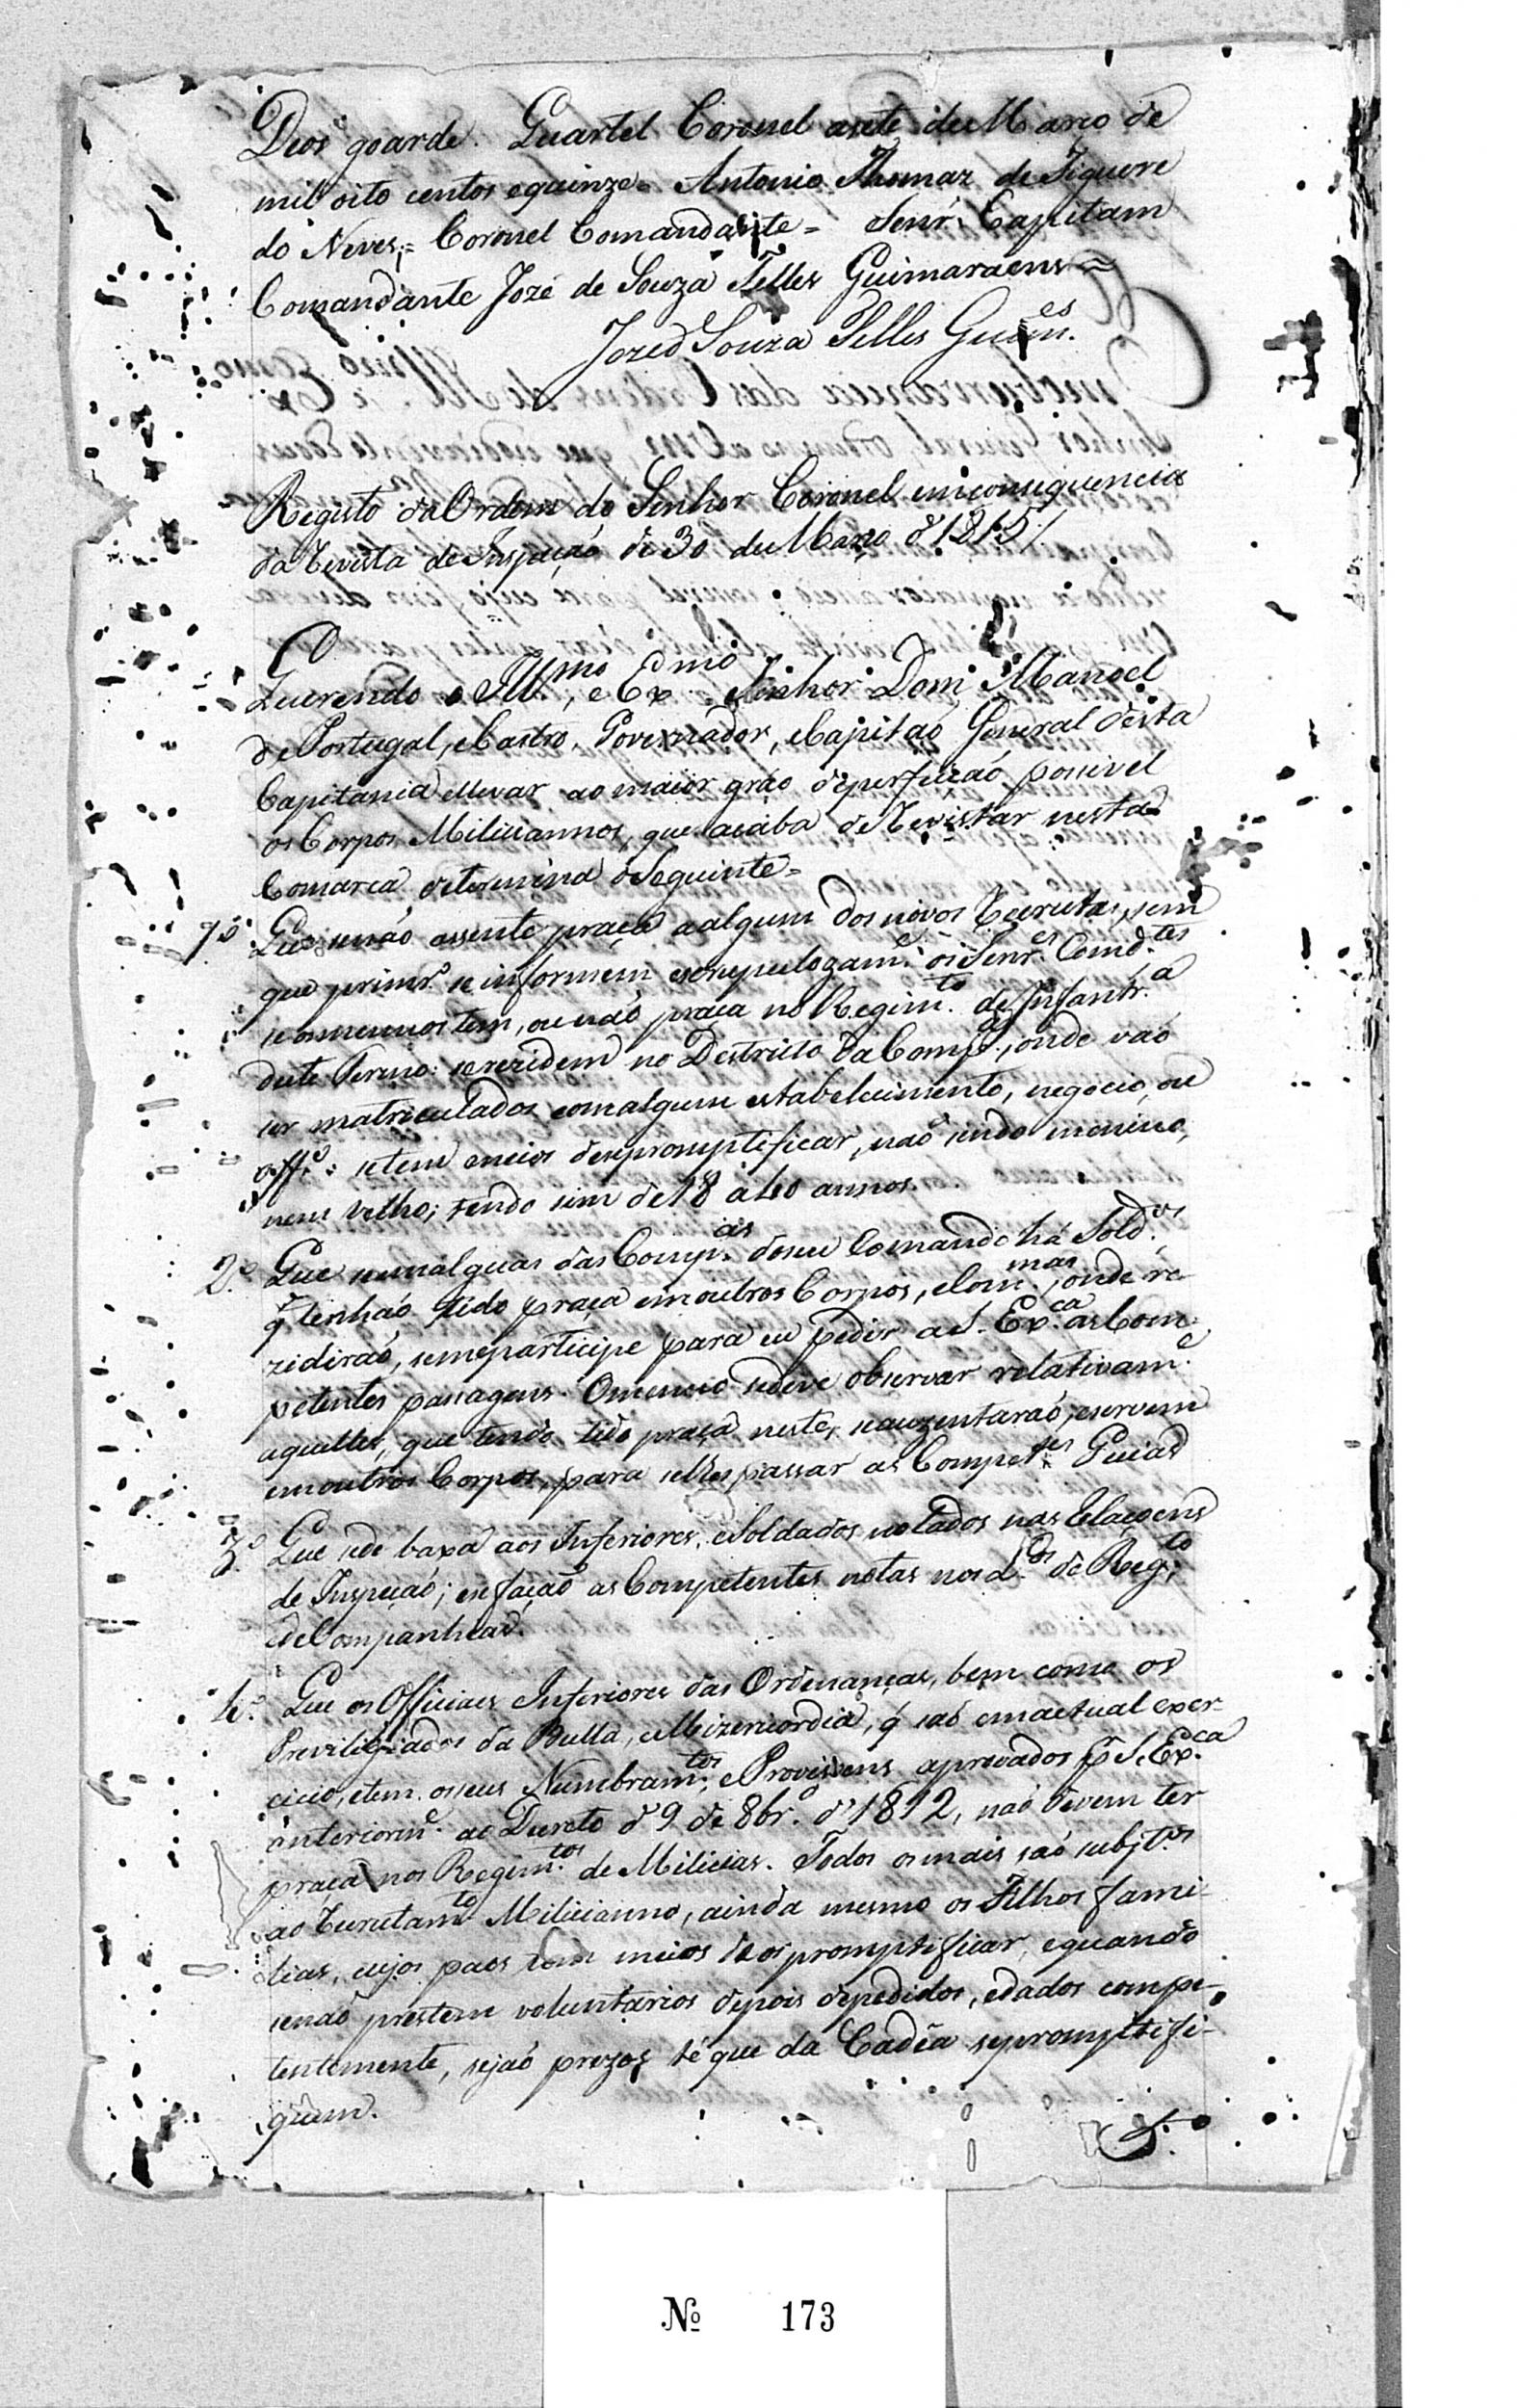 Deos goarde. Quartel Coronel asete de Marco de
mil oito centos equinze = Antonio Thomaz de Figuere
do Neves, = Coronel Comandante = Senr. Capitam
Comandante Jozé de Souza Telles Guimaraens =
Joze d Souza Telles Guim.es
Registo da Ordem do Senhor Coronel emconsequencia
da Revista de Inspeçaõ de 30 de Março d' 1815 /.
Querendo o Ill.mo, e Ex.mo Senhor Dom Manoel
de Portugal, eCastro, Governador, eCapitaõ General desta
Capitania ellevar ao maior gráo deperfeiçaõ possivel
os Corpos Miliciannos, que acaba de Revistar nesta
Comarca determina oSeguinte =
1.º Que senaõ assente praça aalgum dos novos Recrutas, sem
que primr.º se informem escrupulozam.e os Senr.es Comd.tes
seosmesmos tem, ou naõ praça no Regim.to de Infantr.a
deste Termo: serezidem no Destricto da Comp.a, onde vaõ
ser matriculados comalgum estabelecimento, negocio, ou
off.º: setem meios desepromptificar, naõ sendo menino,
nem velho; tendo sim de 18 a 40 annos.
2.º Que seemalguas das Comp.as doseu Comando há Sold.os
q̃ tenhaõ tido praça emoutros Corpos, eCom.mas, onde re-
zidiraõ, semeparticipe para eu pedir a S. Ex.ca as Com-
petentes passagens. Omesmo sedeve observar relativam.e
aquelles, que tendo tido praça neste, seauzentaraõ, eservem
emoutros Corpos, para selhes passar as Compet.es Guias
3.º Que sede baxa aos Inferiores, eSoldados notados nas Relaçoens
de Inspeçaõ; esefaçaõ as Competentes notas nos L.os de Reg.to
edeCompanhias.
4.º Que os Officiaes Inferiores das Ordenanças, bem como os
Previligiados da Bulla, eMizericordia, q̃ saõ emactual exer-
cicio, etem osseus Numbram.tos, eProvisoens aprovados p.r S. Ex.ca
anteriorm.e ao Decreto d' 9 de 8br.º d' 1812, naõ devem ter
praça nos Regim.tos de Milicias. Todos osmais saõ subjt.os
ao Recrutam.to Milicianno, ainda mesmo os Filhos fami-
lias, cujos paes tem meios deospromptificar, equando
senaõ prestem voluntarios depois depedidos, edados compe-
tentemente, sejaõ prezos té que da Cadêa sepromptifi-
quem.
5.º
Nº 173